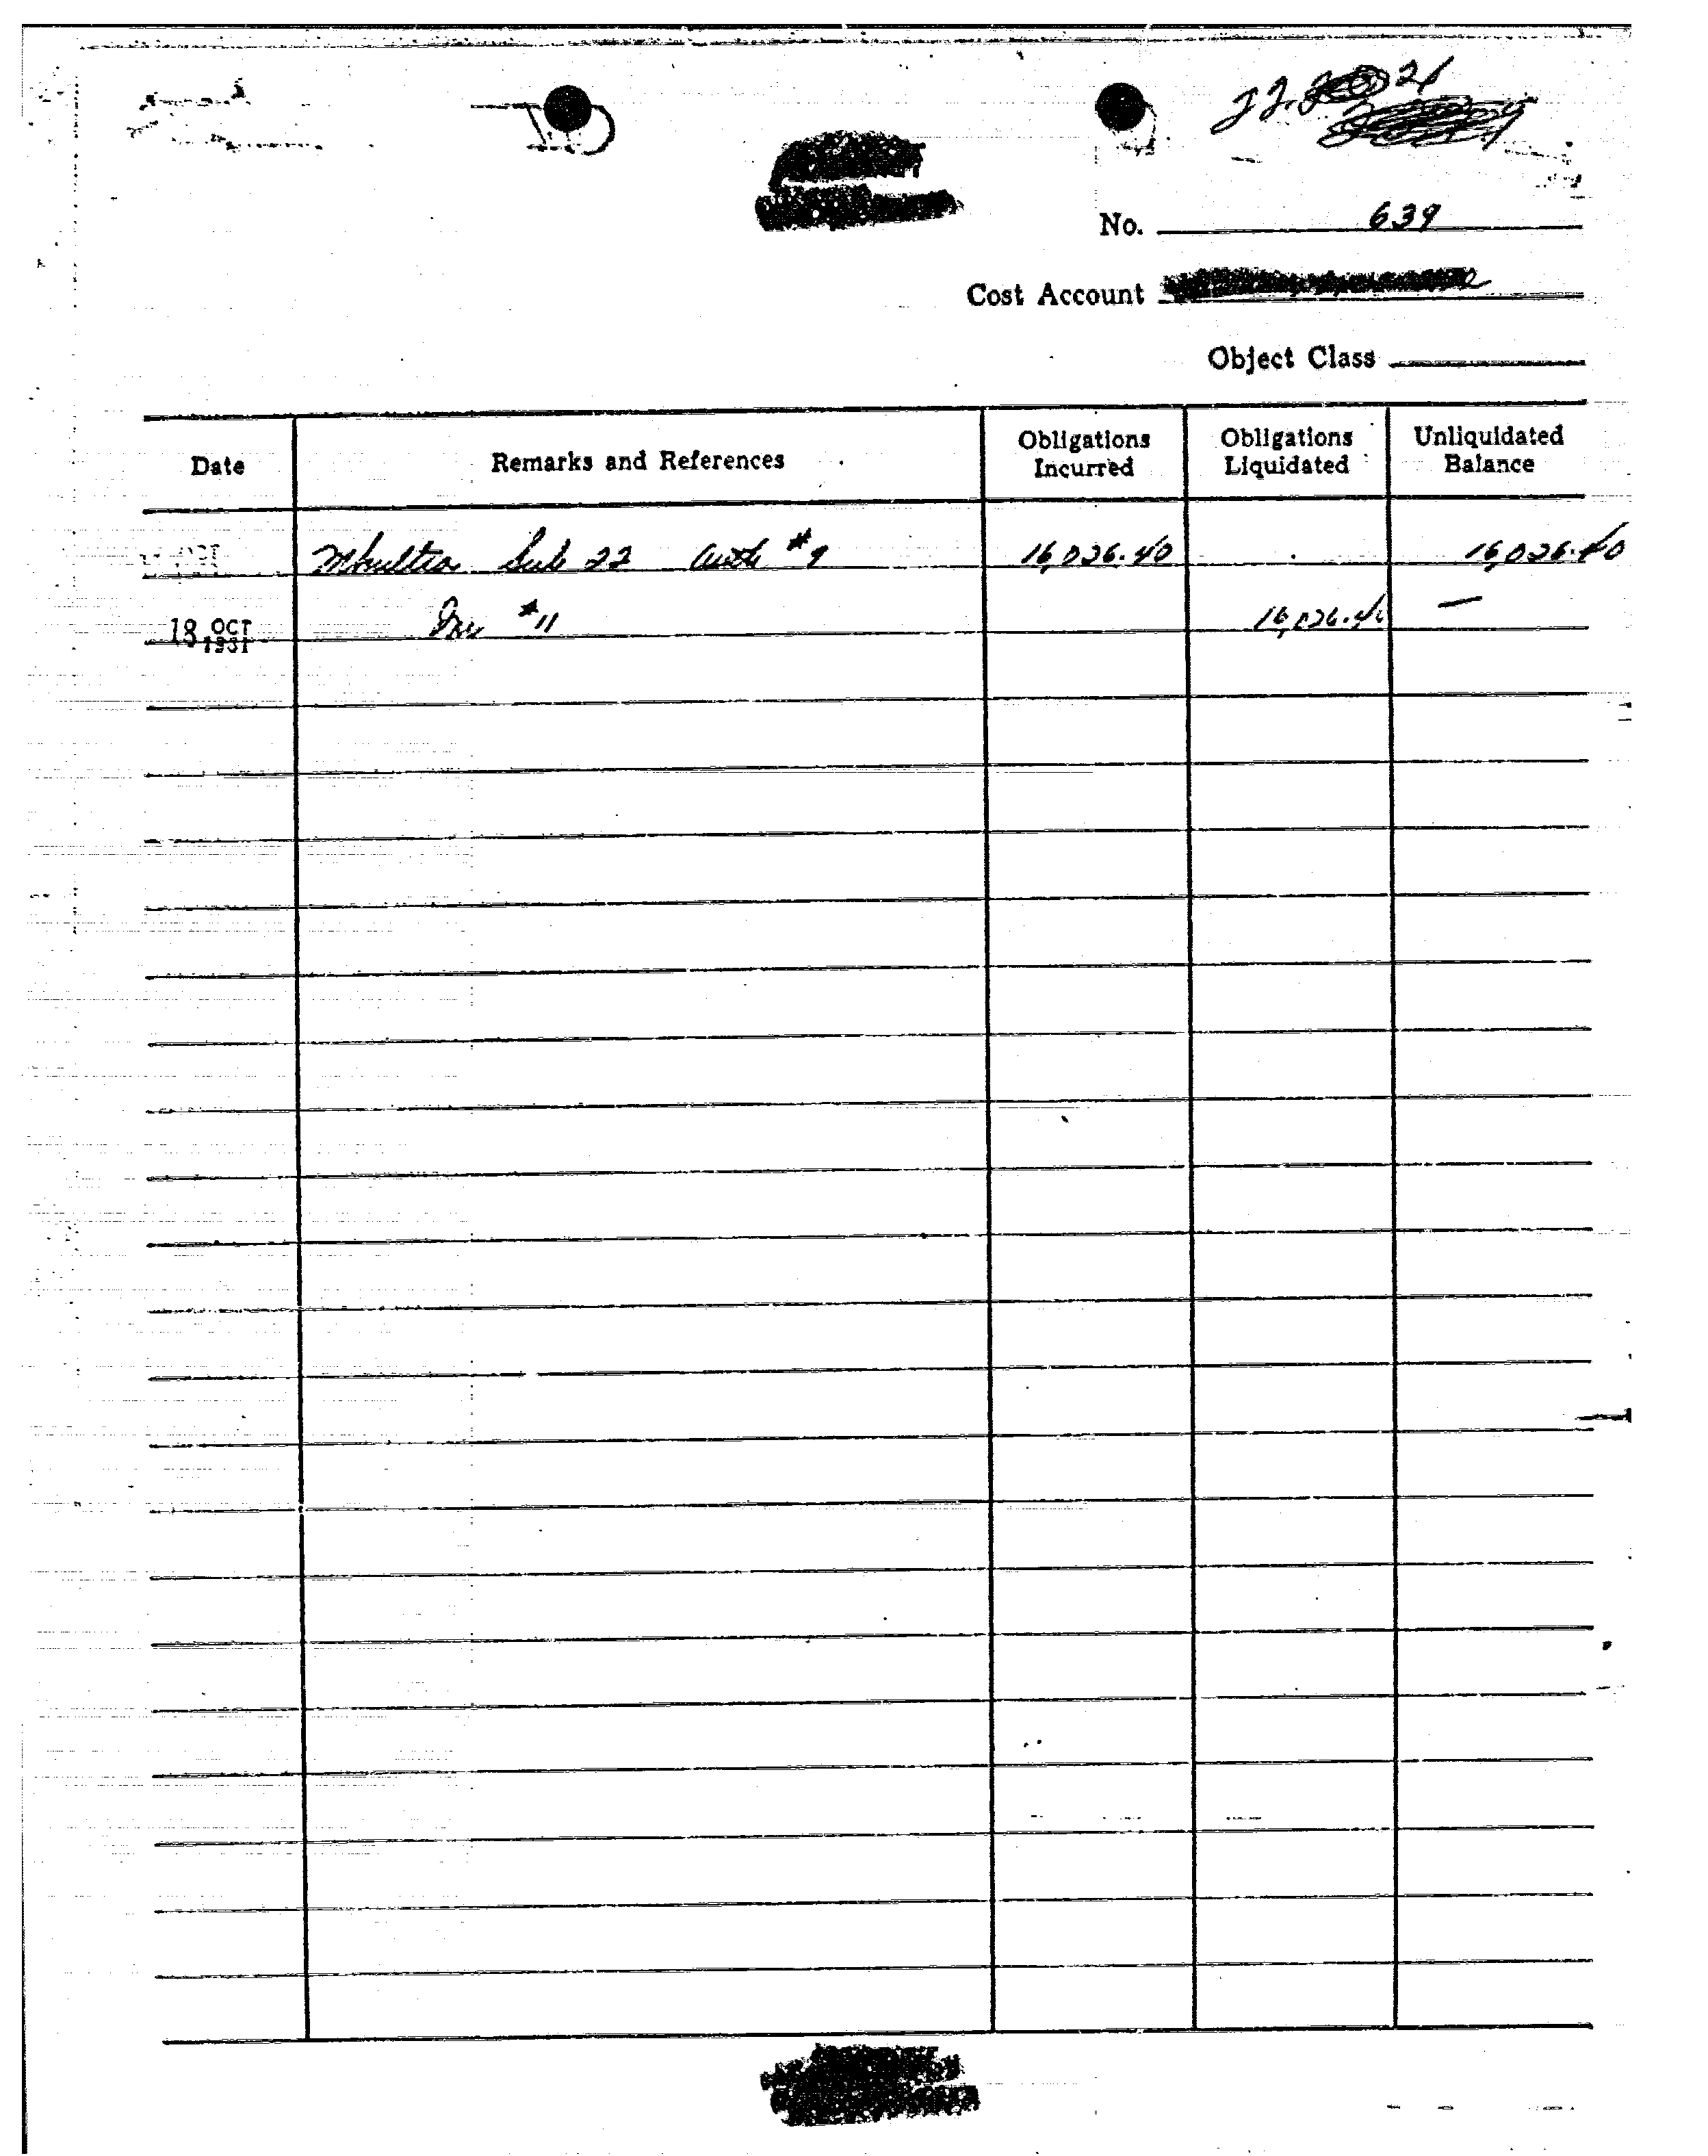 21
No. 639
Cost Account
Object Class
Date Remarks and References Obligations Incurred Obligations Liquidated Unliquidated Balance
OCT Sub 22 Auth #9 16,026.40 16,026.40
18 OCT 1931 Inv #11 16,026.40 —